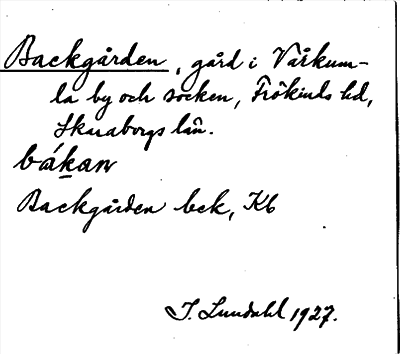 Backgården, gård i Vårkum-
la by och socken, Frökinds hd,
Skaraborgs län.
bákaṉ
Backgården bek, Kb
I. Lundahl 1927.